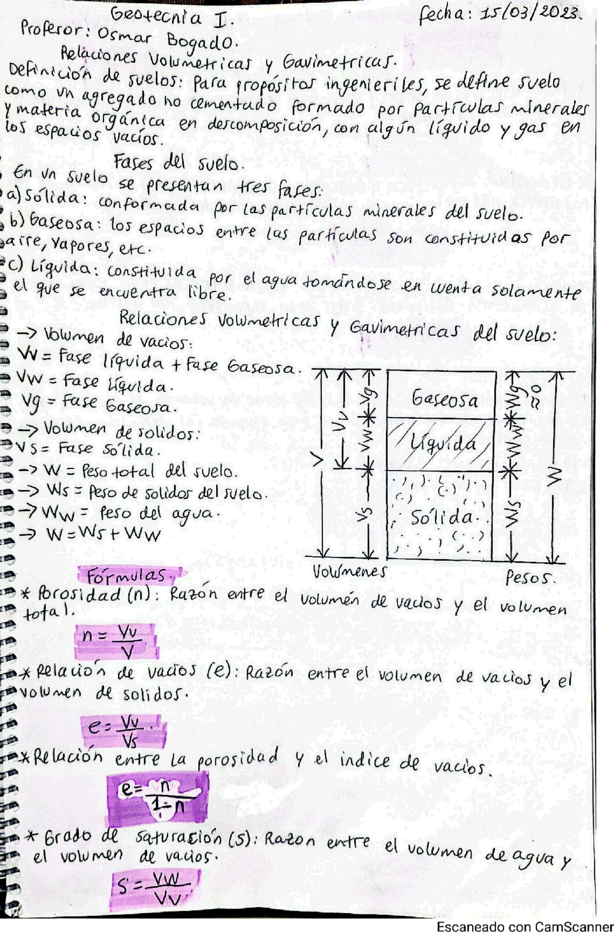 Geotecnia I.
fecha: 15/03/2023.
Profesor: Osmar Bogado.
Relaciones Volumetricas y Gavimetricas.
Definición de suelos: Para propósitos ingenieriles, se define suelo
como un agregado no cementado formado por partículas minerales
y materia orgánica en descomposición, con algún líquido y gas en
los espacios vacíos.
Fases del suelo.
En un suelo se presentan tres fases:
a) Sólida: conformada por las partículas minerales del suelo.
b) Gaseosa: los espacios entre las partículas son constituidas por
aire, vapores, etc.
c) Líquida: constituida por el agua tomándose en cuenta solamente
el que se encuentra libre.
Relaciones Volumetricas y Gavimetricas del suelo:
→ Volumen de vacios:
Vv = Fase líquida + Fase Gaseosa.
Vw = Fase líquida.
Vg = Fase Gaseosa.
→ Volumen de solidos:
Vs = Fase Sólida.
→ W = Peso total del suelo.
→ Ws = Peso de solidos del suelo.
→ Ww = Peso del agua.
→ W = Ws + Ww
V
Vv
Vg
Vw
Vs
Gaseosa
Líquida
Sólida
Wg ≈ 0
Ww
Ws
W
Volúmenes
Pesos.
Fórmulas.
* Porosidad (n): Razón entre el volumén de vacios y el volumen
total.
n = Vv/V
* Relación de vacios (e): Razón entre el volumen de vacios y el
volumen de solidos.
e = Vv/Vs.
* Relación entre la porosidad y el indice de vacios.
e = n/1-n
* Grado de saturación (S): Razon entre el volumen de agua y
el volumen de vacios.
S = Vw/Vv
Escaneado con CamScanner